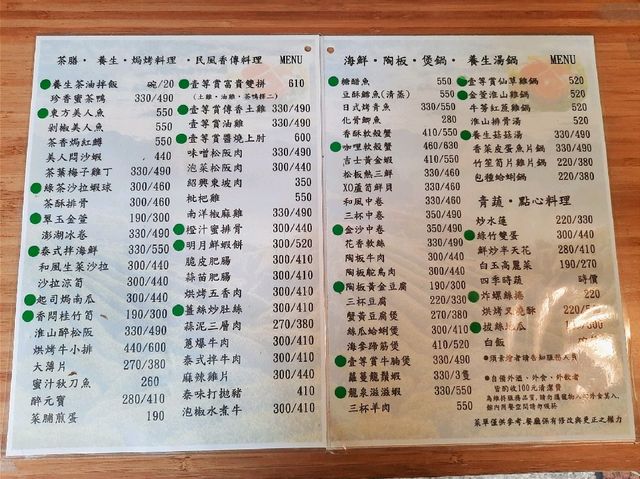 茶膳・養生・焗烤料理・民風香傳料理 MENU
養生茶油拌飯 碗/20
珍香蜜茶鴨 330/490
東方美人魚 550
剁椒美人魚 550
茶香焗紅鱒 550
美人悶沙蝦 440
茶葉梅子雞丁 330/490
綠茶沙拉蝦球 300/460
茶酥排骨 300/460
翠玉金萱 190/300
澎湖冰卷 330/490
泰式拌海鮮 330/550
和風生菜沙拉 300/440
沙拉涼筍 300/440
起司焗南瓜 300/440
香悶桂竹筍 190/300
淮山醉松阪 330/490
烘烤牛小排 440/600
大薄片 270/380
蜜汁秋刀魚 260
醉元寶 280/410
菜脯煎蛋 190
壹等賞富貴雙拼 610
(土雞・油雞・茶鴨擇二)
壹等賞傳香土雞 330/490
壹等賞油雞 330/490
壹等賞醬燒上肘 600
味噌松阪肉 330/490
泡菜松阪肉 330/490
紹興東坡肉 350
枇杷雞 550
南洋椒麻雞 330/490
橙汁蜜排骨 300/440
明月鮮蝦餅 300/520
脆皮肥腸 300/440
蒜苗肥腸 300/440
烘烤五香肉 300/440
薑絲炒肚絲 300/410
蒜泥三層肉 270/380
蔥爆牛肉 300/410
泰式拌牛肉 300/440
麻辣雞片 300/440
泰味打拋豬 410
泡椒水煮牛 300/410
海鮮・陶板・煲鍋・養生湯鍋 MENU
糖醋魚 550
豆酥鱈魚(清蒸) 550
日式烤青魚 330/550
化骨鯽魚 280
香酥軟殼蟹 410/550
咖哩軟殼蟹 460/630
吉士黃金蝦 410/550
松板熱三鮮 330/490
XO蘆筍鮮貝 330/490
和風中卷 330/490
三杯中卷 330/490
金沙中卷 330/490
花香軟絲 330/490
陶板牛肉 300/440
陶板鴕鳥肉 300/440
陶板黃金豆腐 220/330
三杯豆腐 220/330
蟹黃豆腐煲 220/330
絲瓜蛤蜊煲 300/410
海參蹄筋煲 300/410
壹等賞牛腩煲 330/490
蘿蔓龍鬚蝦 330/3隻
龍泉滋滋蝦 330/550
三杯羊肉 550
壹等賞仙草雞鍋 520
金萱淮山雞鍋 520
牛蒡紅蔗雞鍋 520
淮山排骨湯 520
養生菇菇湯 330/490
香菜皮蛋魚片鍋 330/490
竹笙筍片雞片鍋 330/490
包種蛤蜊鍋 330/490
青蔬・點心料理
炒水蓮 220/330
綠竹雙蛋 300/440
鮮炒半天花 280/410
白玉高麗菜 190/270
四季時蔬 時價
炸螺絲捲 220
烘烤叉燒酥
拔絲地瓜
白飯
●須素燴者請告知服務人員
●自備外酒、外食、外飲者
皆酌收100元清潔費
為維持服務品質,請勿攜寵物入內外食其入,
館內用餐空間請勿吸菸
菜單僅供參考,餐廳保有修改與更正之權力